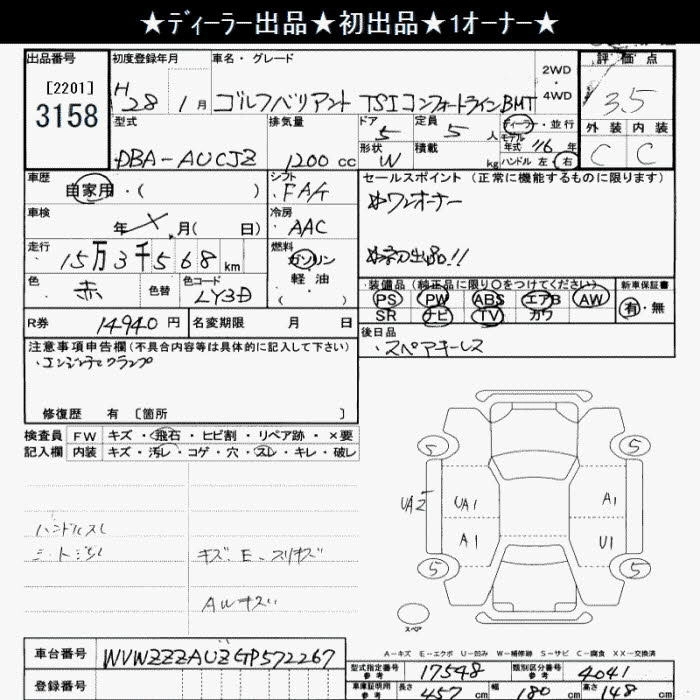 ★ディーラー出品★初出品★1オーナー★
出品番号 初度登録年月 車名・グレード 評価点
[2201]
3158
H28 1月 ゴルフバリアント TSIコンフォートラインBMT
2WD・4WD
3.5
型式 排気量 ドア 5 定員 5 人 ディーラー・並行
外装 内装
DBA-AUCJZ 1200cc 形状 W 積載 kg モデル年式 '16年
ハンドル 左 右
C C
車歴 自家用・( ) シフト FAT
セールスポイント (正常に機能するものに限ります)
ワンオーナー
車検 年 月( 日) 冷房 AAC
初出品!!
走行 15万3千568km 燃料 ガソリン 軽油 ( )
色 赤 色替 色コード LY3D
装備品 (純正品に限り○をつけてください) 新車保証書
PS PW ABS エアB AW 有・無
SR ナビ TV カワ
R券 14940円 名変期限 月 日
後日品
・スペアキーレス
注意事項申告欄 (不具合内容等は具体的に記入して下さい)
・エンジンチェックランプ
修復歴 有 [箇所 ]
検査員記入欄 FW キズ・飛石・ヒビ割・リペア跡・×要
内装 キズ・汚レ・コゲ・穴・スレ・キレ・破レ
ハンドルスレ
キズ、E、スリキズ
AWキズ
5 5
UA2 UA1 A1
A1 U1
5 5
スペア
A-キズ E-エクボ U-凹み W-補修跡 S-サビ C-腐食 XX-交換済
車台番号 WVWZZZAUZGP572267
登録番号
型式指定番号 参考 17548 類別区分番号 参考 4041
車庫証明用 参考 長さ 457cm 幅 180cm 高さ 148cm